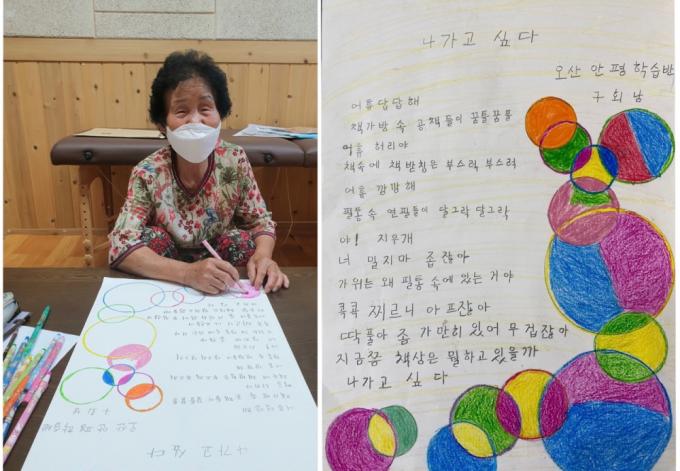 나가고 싶다
오산 안평 학습반
구 회 남
어휴 답답해
책가방 속 공책들이 꿈틀꿈틀
어휴 허리야
책속에 책받침은 부스럭 부스러
어휴 깜깜해
필통 속 연필들이 달그락 달그락
야! 지우개
너 밀지마 좁잖아
가위는 왜 필통 속에 있는 거야
콕콕 찌르니 아프잖아
딱풀아 좀 가만히 있어 무겁잖아
지금쯤 책상은 뭘하고 있을까
나가고 싶다